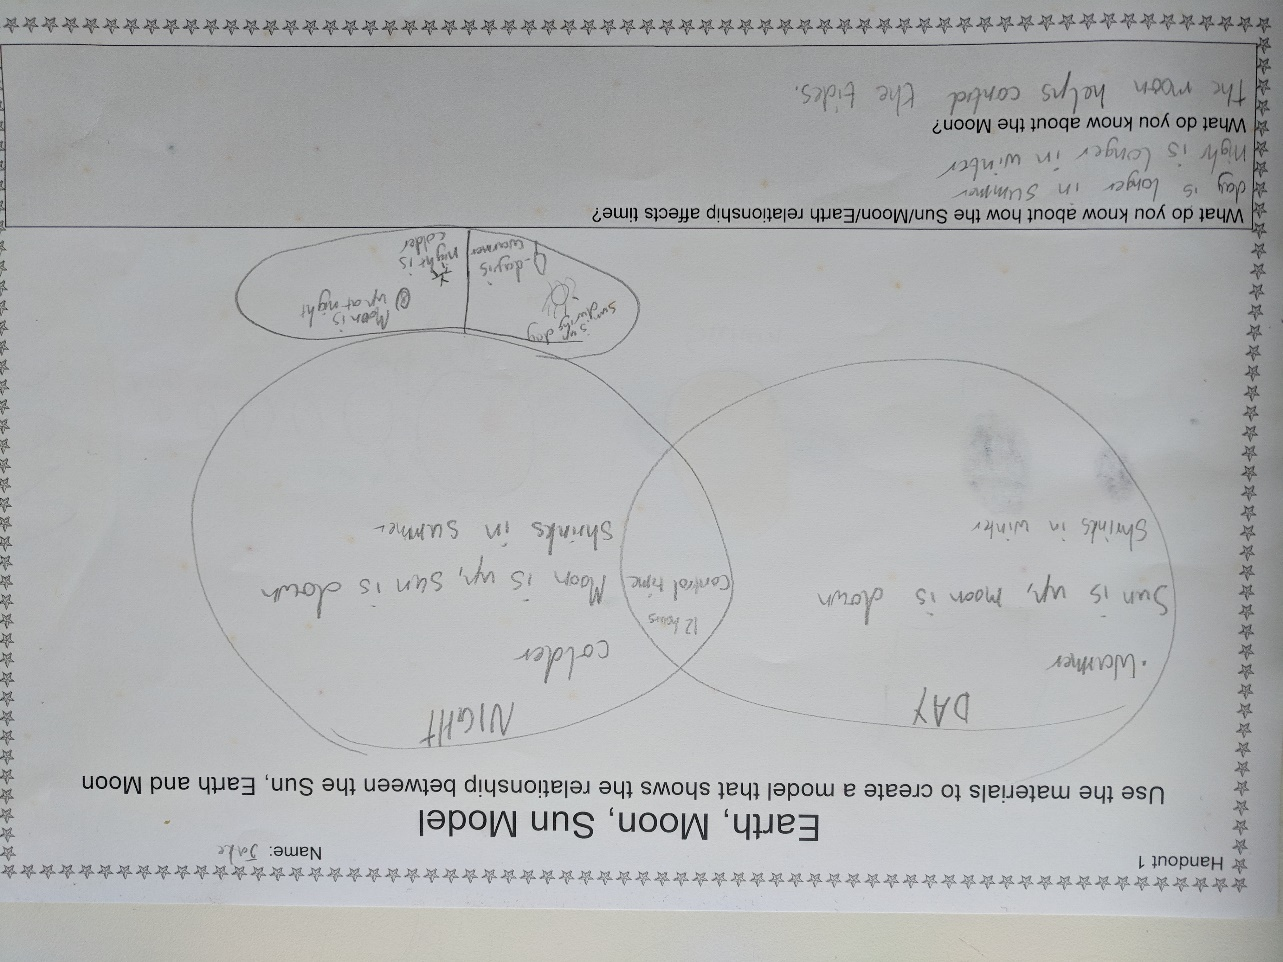 Handout 1
Name: Jake
Earth, Moon, Sun Model
Use the materials to create a model that shows the relationship between the Sun, Earth and Moon
DAY
• Warmer
Sun is up, moon is down
Shrinks in winter
12 hours
Control time
NIGHT
colder
Moon is up, sun is down
Shrinks in summer
sun
up
during
day
day is
warmer
Moon is
up at night
night is
colder
What do you know about how the Sun/Moon/Earth relationship affects time?
day is longer in summer
nigh is longer in winter
What do you know about the Moon?
the moon helps control the tides.